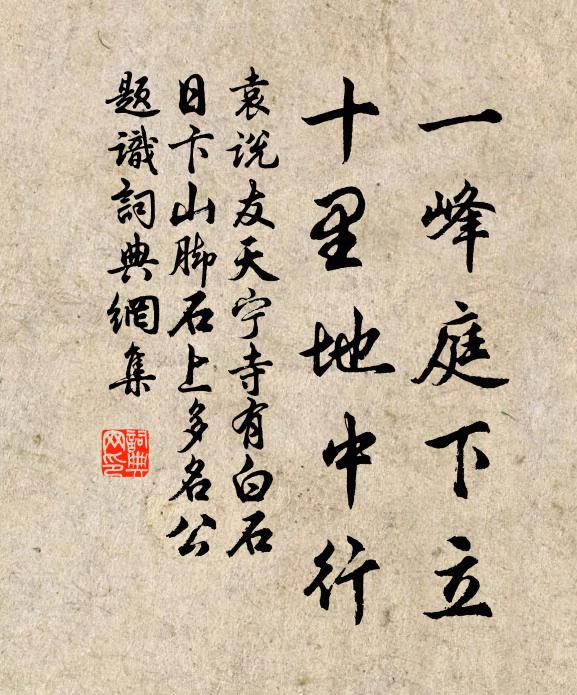 一峰庭下立
十里地中行
袁说友天宁寺有白石
日卞山脚石上多名公
题識詞典網集
詞典
网印